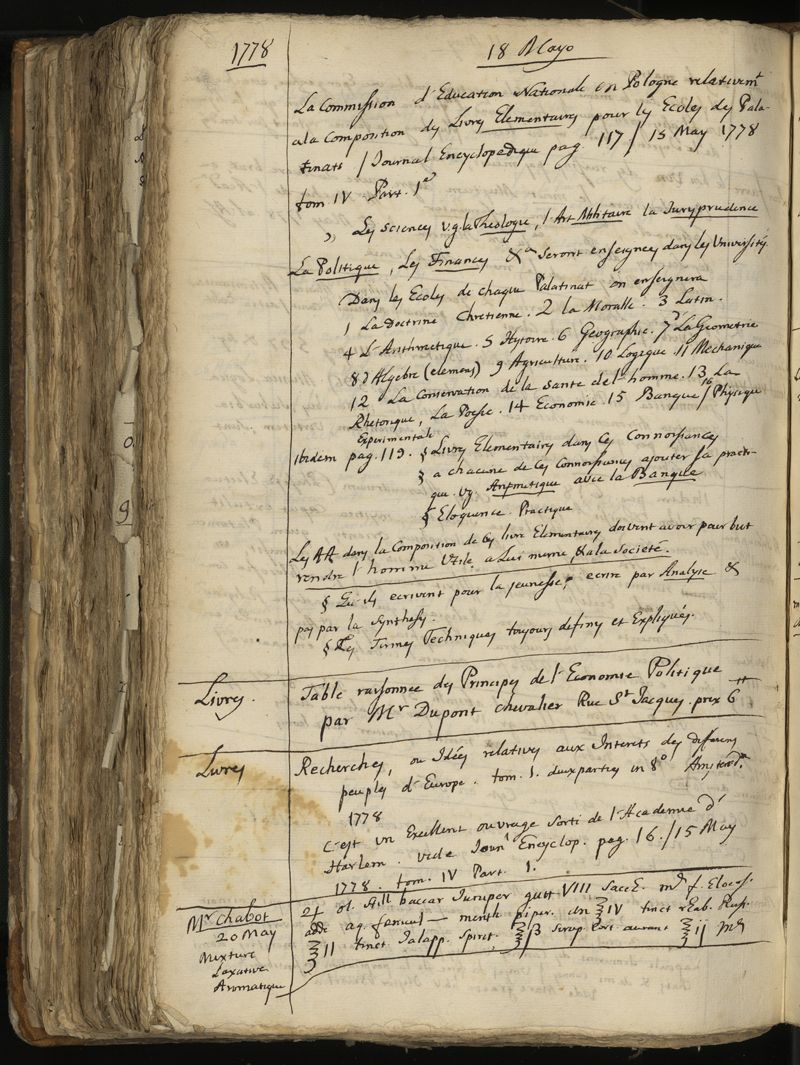 1778
18 Mayo
La Commission d'Education Nationale en Pologne relativemt
a la Composition des Livres Elementaires pour les Ecoles des Pala-
tinats / Journal Encyclopedique pag 117 / 15 May 1778
tom IV. Part. 1e
,, Les Sciences v.g. la Theologie, l'Art Militaire la Jurisprudence
La Politique, Les Finances &a seront enseignées dans les Université
Dans les Ecoles de chaque Palatinat on enseignera
1 La Doctrine Chretienne. 2 la Moralle. 3 Latin.
4 L'Arithmetique. 5 Hytoire. 6 Geographie. 7 La Geometrie
8 d'Algebre (elemens) 9 Agriculture. 10 Logique 11 Mechanique
12 La Conservation de la santé de l'homme. 13 La
Rhetorique, La Poesie. 14 Economie. 15 Banque / 16 Physique
Experimentale
ibidem pag. 119. § Livres Elementaires dans ces Connoissances
§ a chacune de ces Connoissances ajouter la pract-
que. vg. Arithmetique avec la Banque
§ Eloquence. Practique
Les AA dans la Composition de ces livres Elementaires doivent avoir pour but
rendre l'homme Utile a Lui meme & a la Societé.
§ Qu'ils ecrivent pour la jeunesse, ecrire par Analyse &
pas par la Synthese.
§ Les Termes Techniques toujours definis et Expliqués.
Livres.
Table raisonnée des Principes de l'Economie Politique
par Mr Dupont chevalier Rue St Jacques. prix 6 tt
Livres
Recherches, ou Idées relatives aux Interets des differens
peuples d'Europe. tom. 1. deux parties in 8o Amsterd.
1778
C'est un Excellent ouvrage sorti de l'Academie d'
Harlem. vide Journl Encyclop. pag. 16. / 15 May
1778. tom. IV Part. 1.
Mr Chabot
20 May
Mixture
Laxative
Aromatique
ol. still baccar Juniper gutt VIII Sacc. f. Eloeos.
adde aq. fenicul — menth piper. an ℥ IV tinct Rhab.
℥ II tinct Jalapp. Spirit. ℥ β Sirup Cort. aurant ℥ ij